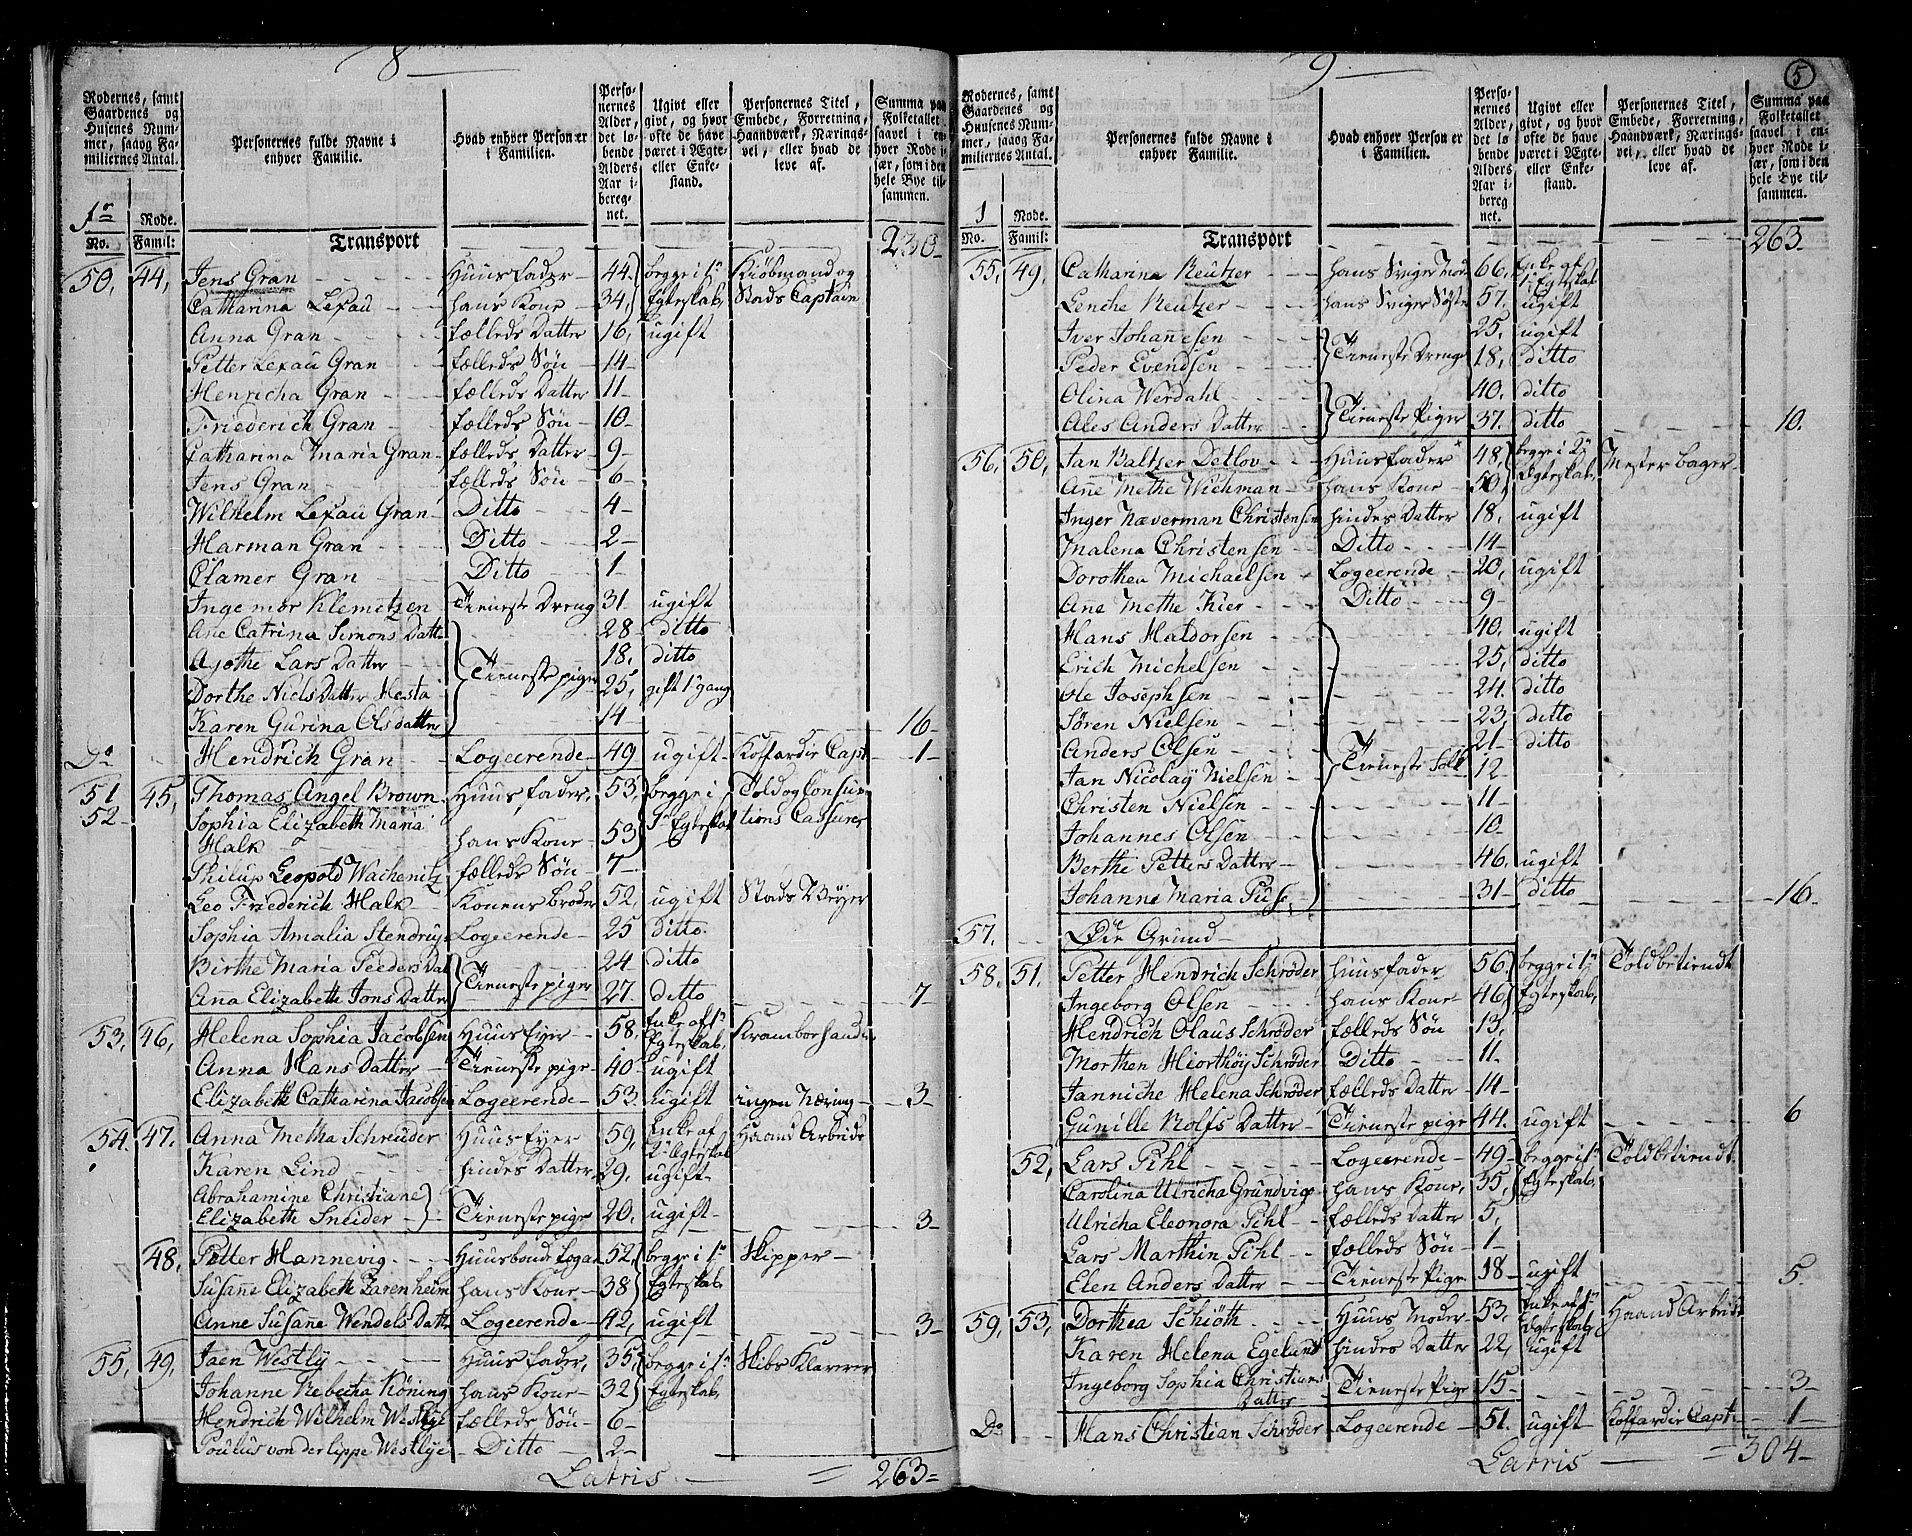 8
Rodernes, samt Gaardenes og Husenes Nummer, saavog Familiernes Antal.
Personernes fulde Navne i enhver Familie.
Hvad enhver Person er i Familien.
Personernes Alder, det løbende Alders Aar iberegnet.
Ugivt eller givt, og hvor ofte de have været i Ægte- eller Enkestand.
Personernes Titel, Embede, Forretning, Haandværk, Næringsvei, eller hvad de leve af.
Summa paa Folketallet saavel i enhver Rode især, som i den hele Bye tilsammen.
1ste Rode.
No. Famil:
Transport 230
50, 44, Jens Gran Huusfader 44, begge i 1ste Kiøbmand og
Catharina Lexau hans Kone 34, Egteskab, Stads Captain
Anna Gran fælleds Datter 16, ugift
Petter Lexau Gran fælleds Søn 14
Henricha Gran fælleds Datter 11
Friederich Gran fælleds Søn 10
Catharina Maria Gran fælleds Datter 9
Jens Gran fælleds Søn 6
Wilhelm Lexau Gran Ditto 4
Harman Gran Ditto 2
Clamer Gran Ditto 1
Ingemor Klemetzen Tieneste Dreng 31 ugift
Ane Catrina Simons Datter 28 ditto
Agothe Lars Datter Tieneste piger 18, ditto
Dorthe Niels Datter Hestal 25, gift 1 gang
Karen Gurina Olsdatter 14 16
Do Hendrich Gran Logeerende 49 ugift Koffardie Capt 1
51 45, Thomas Angel Brown Huusfader, 53, begge i Told og Consum-
52 Sophia Elizabeth Maria Halk hans Kone 53 1ste Egteskab tions Casserer
Philip Leopold Wachenitz fælleds Søn 7
Leo Friederich Halk Konens broder 52, ugift Stads Veyer
Sophia Amalia Stendrup Logeerende 25 ditto
Birthe Maria Peeders Dat 24 ditto
Ana Elizabeth Jons Datter Tieneste piger 27. ditto 7
53, 46, Helena Sophia Jacobsen Huus Eyer 58, Enke af 1ste Egteskab, Kramboehandel
Anna Hans Datter Tieneste pige 40 ugift
Elizabeth Catharina Jacobsen Logeerende 53. ugift ingen Næring 3
54. 47. Anna Metha Schreuder Huus Eyer 59, Enke af 2de Egteskab Haand Arbeide
Karen Lind hindes Datter 29, ugift
Abrahamine Christiane
Elizabeth Sneider Tieneste pige 20, ugift 3
48, Petter Hannevig Huusbonde Logerende 52, begge i 1ste Skipper
Susane Elizabeth Zarenheim hans Kone 38 Egteskab
Anne Susane Wendels Datter Logeerende 42, ugift 3
55, 49, Jaen Westly Huusfader, 35, begge i 1ste Skibs Klarerer
Johanne Rebecha Köning hans Kone 32 Egteskab,
Hendrich Wilhelm Westlye fælleds Søn 6
Poulus von der lippe Westlye Ditto 2
Latris = 263=
9
5
Rodernes, samt Gaardenes og Husenes Nummer, saavog Familiernes Antal.
Personernes fulde Navne i enhver Familie.
Hvad enhver Person er i Familien.
Personernes Alder, det løbende Alders Aar iberegnet.
Ugivt eller givt, og hvor ofte de have været i Ægte- eller Enkestand.
Personernes Titel, Embede, Forretning, Haandværk, Næringsvei, eller hvad de leve af.
Summa paa Folketallet saavel i enhver Rode især, som i den hele Bye tilsammen.
1 Rode.
No. Famil:
Transport 263.
55, 49, Catharina Reutzer hans Sviger Moder 66, Enke af 1ste Egteskab
Lenche Reutzer hans Sviger Søster 57. ugift
Iver Johanesen 25, ugift
Peder Evendsen Tieneste Drenge 18, ditto
Olina Werdahl 40, ditto
Ales Anders Datter Tieneste Piger 37. ditto 10.
56, 50, Jan Baltzer Detlov Huusfader 48, begge i 2de Mester bager
Ane Methe Wichman hans Kone 50, Egteskab,
Inger Næverman Christensen hindes Datter 18, ugift
Malena Christensen Ditto 14
Dorothea Michaelsen Logeerende 20, ugift
Ane Methe Kier Ditto 9
Hans Haldorsen 40, ugift
Erich Michelsen 25, ditto
Ole Josephsen 24. ditto
Søren Nielsen 23, ditto
Anders Olsen Tieneste folk 21 ditto
Jan Nicolay Nielsen 12
Christen Nielsen 11
Johannes Olsen 10
Berthe Petters Datter 46. ugift
Johanne Maria Puse 31 ditto 16
57. Øde Grund
58, 51, Petter Hendrich Schrøder Huusfader 56, begge i 1ste Toldbetiendt
Ingeborg Olsen hans Kone 46, Egteskab,
Hendrich Olaus Schrøder fælleds Søn 13,
Morthen Hiorthöy Schrøder Ditto 11
Janniche Helena Schrøder fælleds Datter 14
Gunille Rolfs Datter Tieneste pige 44. ugift 6
52, Lars Pihl Logeerende 49 begge i 1ste Toldbetiendt
Carolina Ulricha Grundvig hans Kone, 35, Egteskab,
Ulricha Eleonora Pihl fælleds Datter 5,
Lars Marthin Pihl fælleds Søn 1
Elen Anders Datter Tieneste Pige 18 ugift 5
59, 53, Dorthea Schiøth Huus Moder 53, Enke af 1ste Egteskab Haand Arbeide
Karen Helena Egelund hindes Datter 22, ugift
Ingeborg Sophia Christians Datter Tieneste Pige 15 3
Do Hans Christian Schrøder Logeerende 51. ugift Koffardie Capt 1
Latris = 304